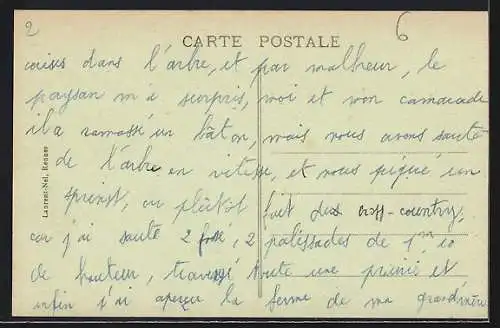 2
6
CARTE POSTALE
cerises dans l'arbre, et par malheur, le
paysan m'a surpris, moi et mon camarade
il a ramassé un bâton, mais nous avons sauté
de l'arbre en vitesse, et nous piqué un
sprint, ou plutôt fait du cross-country,
car j'ai sauté 2 fossé, 2 palissades de 1m10
de hauteur, traversé toute une prairie et
enfin j'ai aperçu la ferme de ma grand'mère
Laurent-Nel, Rennes